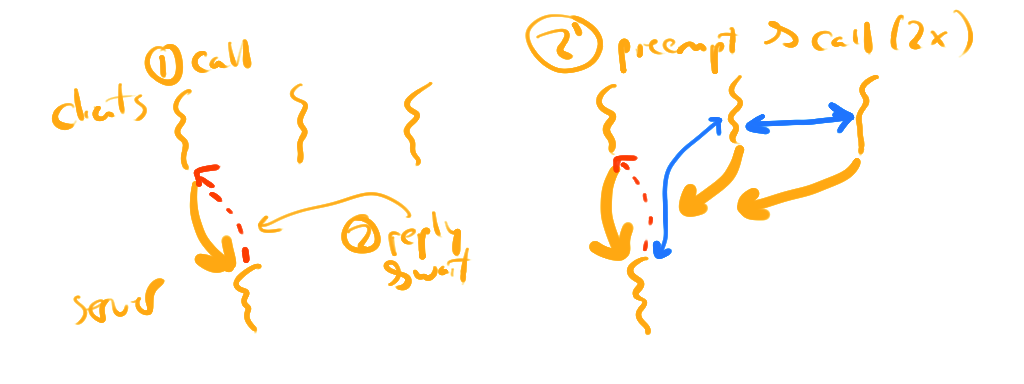 ① call
clients
② reply
& wait
server
②' preempt & call (2x)